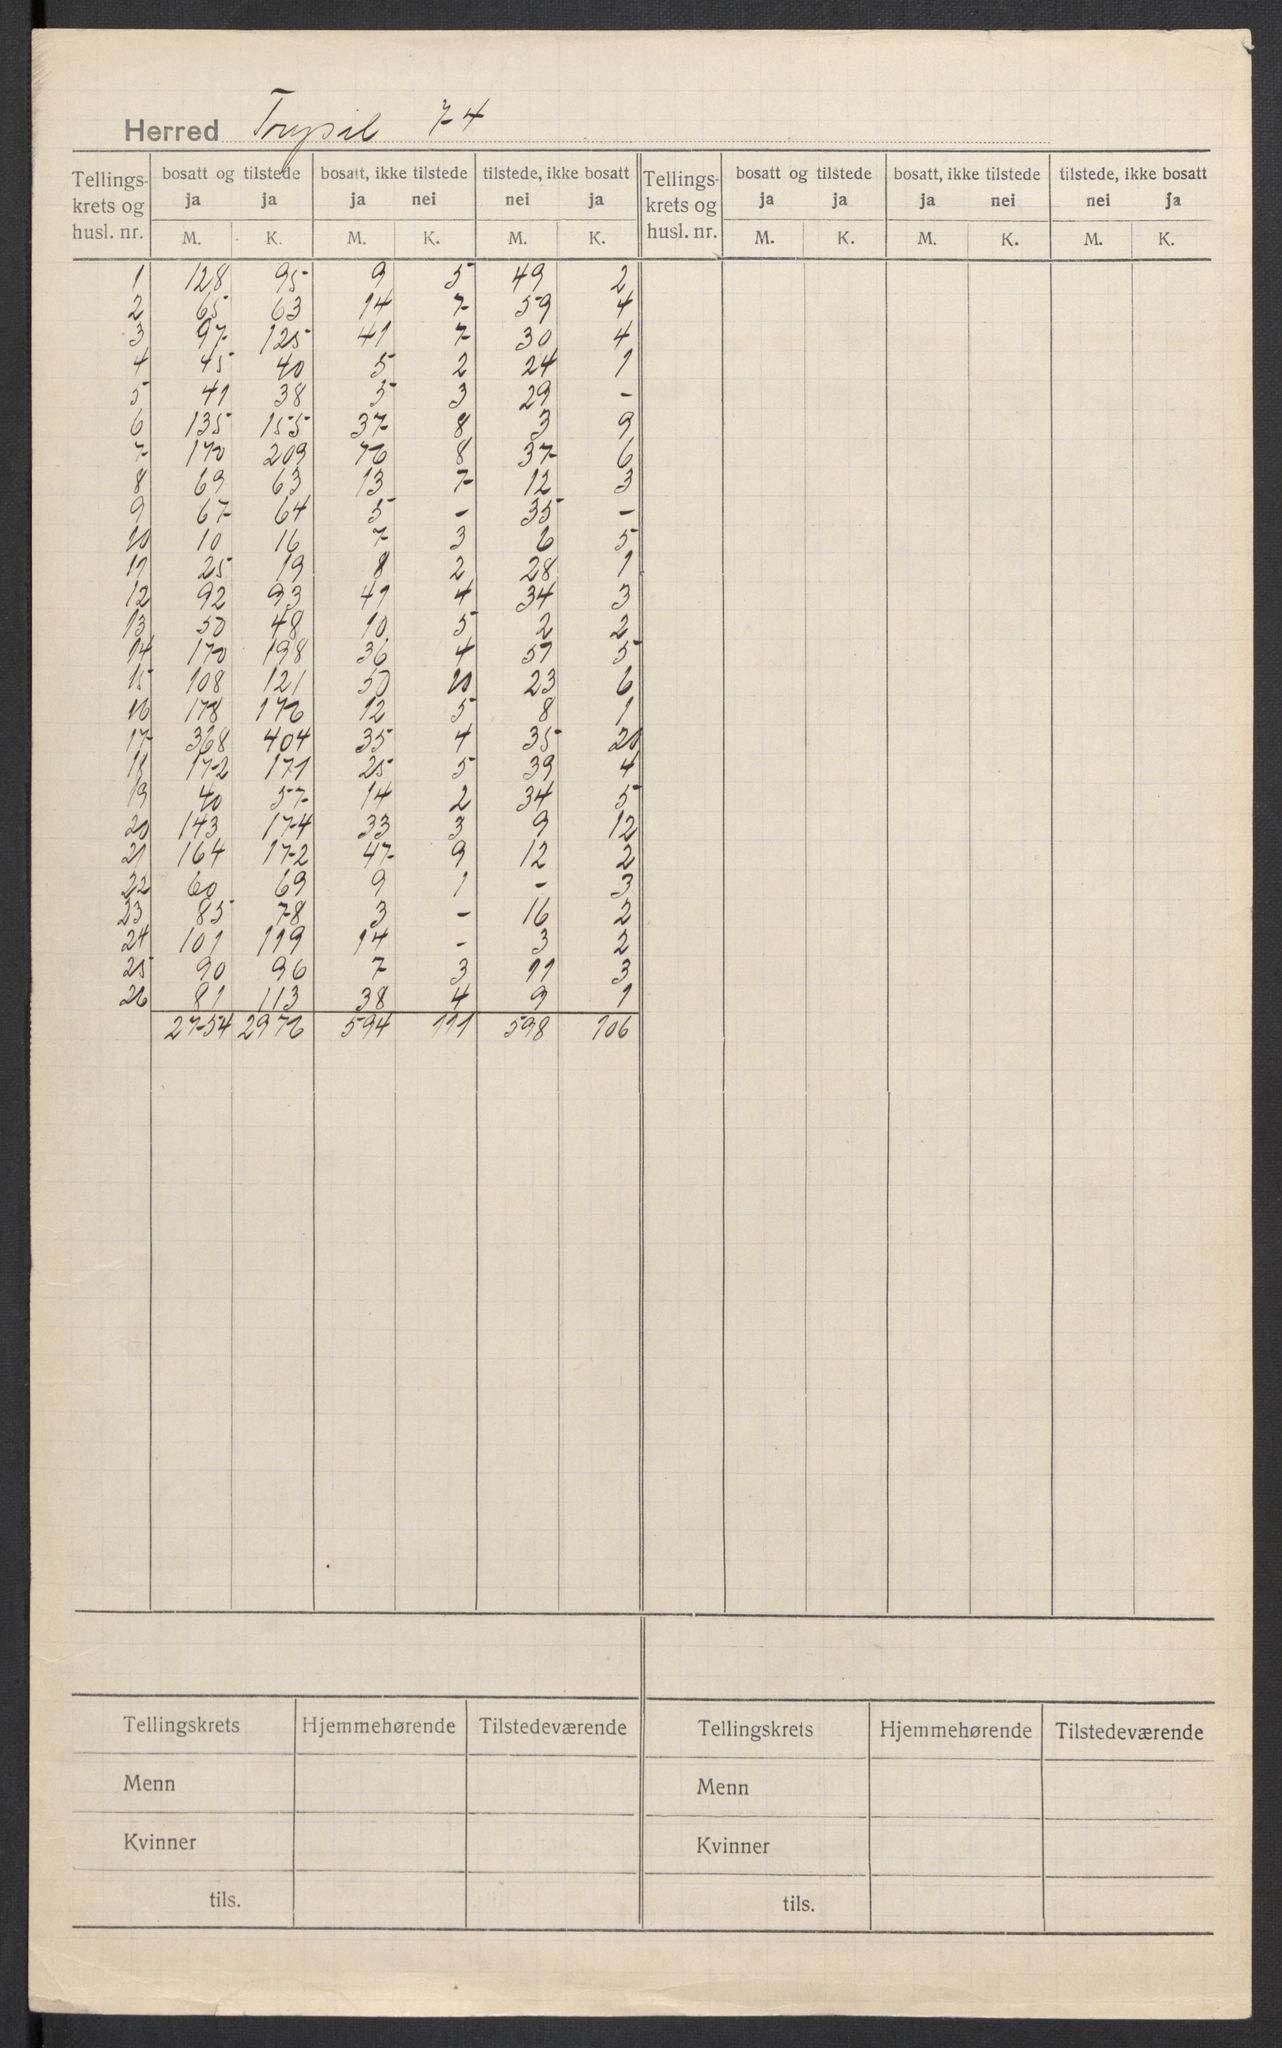 Herred Trysil 74
Tellings-krets og husl. nr. | bosatt og tilstede | bosatt, ikke tilstede | tilstede, ikke bosatt | Tellings-krets og husl. nr. | bosatt og tilstede | bosatt, ikke tilstede | tilstede, ikke bosatt
ja ja ja nei nei ja ja ja ja nei nei ja
M. K. M. K. M. K. M. K. M. K. M. K.
1 128 95 9 5 49 2
2 65 63 14 7 59 4
3 97 125 41 7 30 4
4 45 40 5 2 24 1
5 41 38 5 3 29 -
6 135 155 37 8 3 9
7 170 209 76 8 37 6
8 69 63 13 7 12 3
9 67 64 5 - 35 -
10 10 16 7 3 6 5
11 25 19 8 2 28 1
12 92 93 41 4 34 3
13 50 48 10 5 2 2
14 170 198 36 4 51 5
15 108 121 50 10 23 6
16 178 176 12 5 8 1
17 368 404 35 4 35 20
18 172 171 25 5 39 4
19 40 57 14 2 34 5
20 143 174 33 3 9 12
21 164 172 47 9 12 2
22 60 69 9 1 - 3
23 85 78 3 - 16 2
24 101 119 14 - 3 2
25 90 96 7 3 11 3
26 81 113 38 4 9 1
2754 2976 594 111 598 106
Tellingskrets Hjemmehørende Tilstedeværende Tellingskrets Hjemmehørende Tilstedeværende
Menn Menn
Kvinner Kvinner
tils. tils.